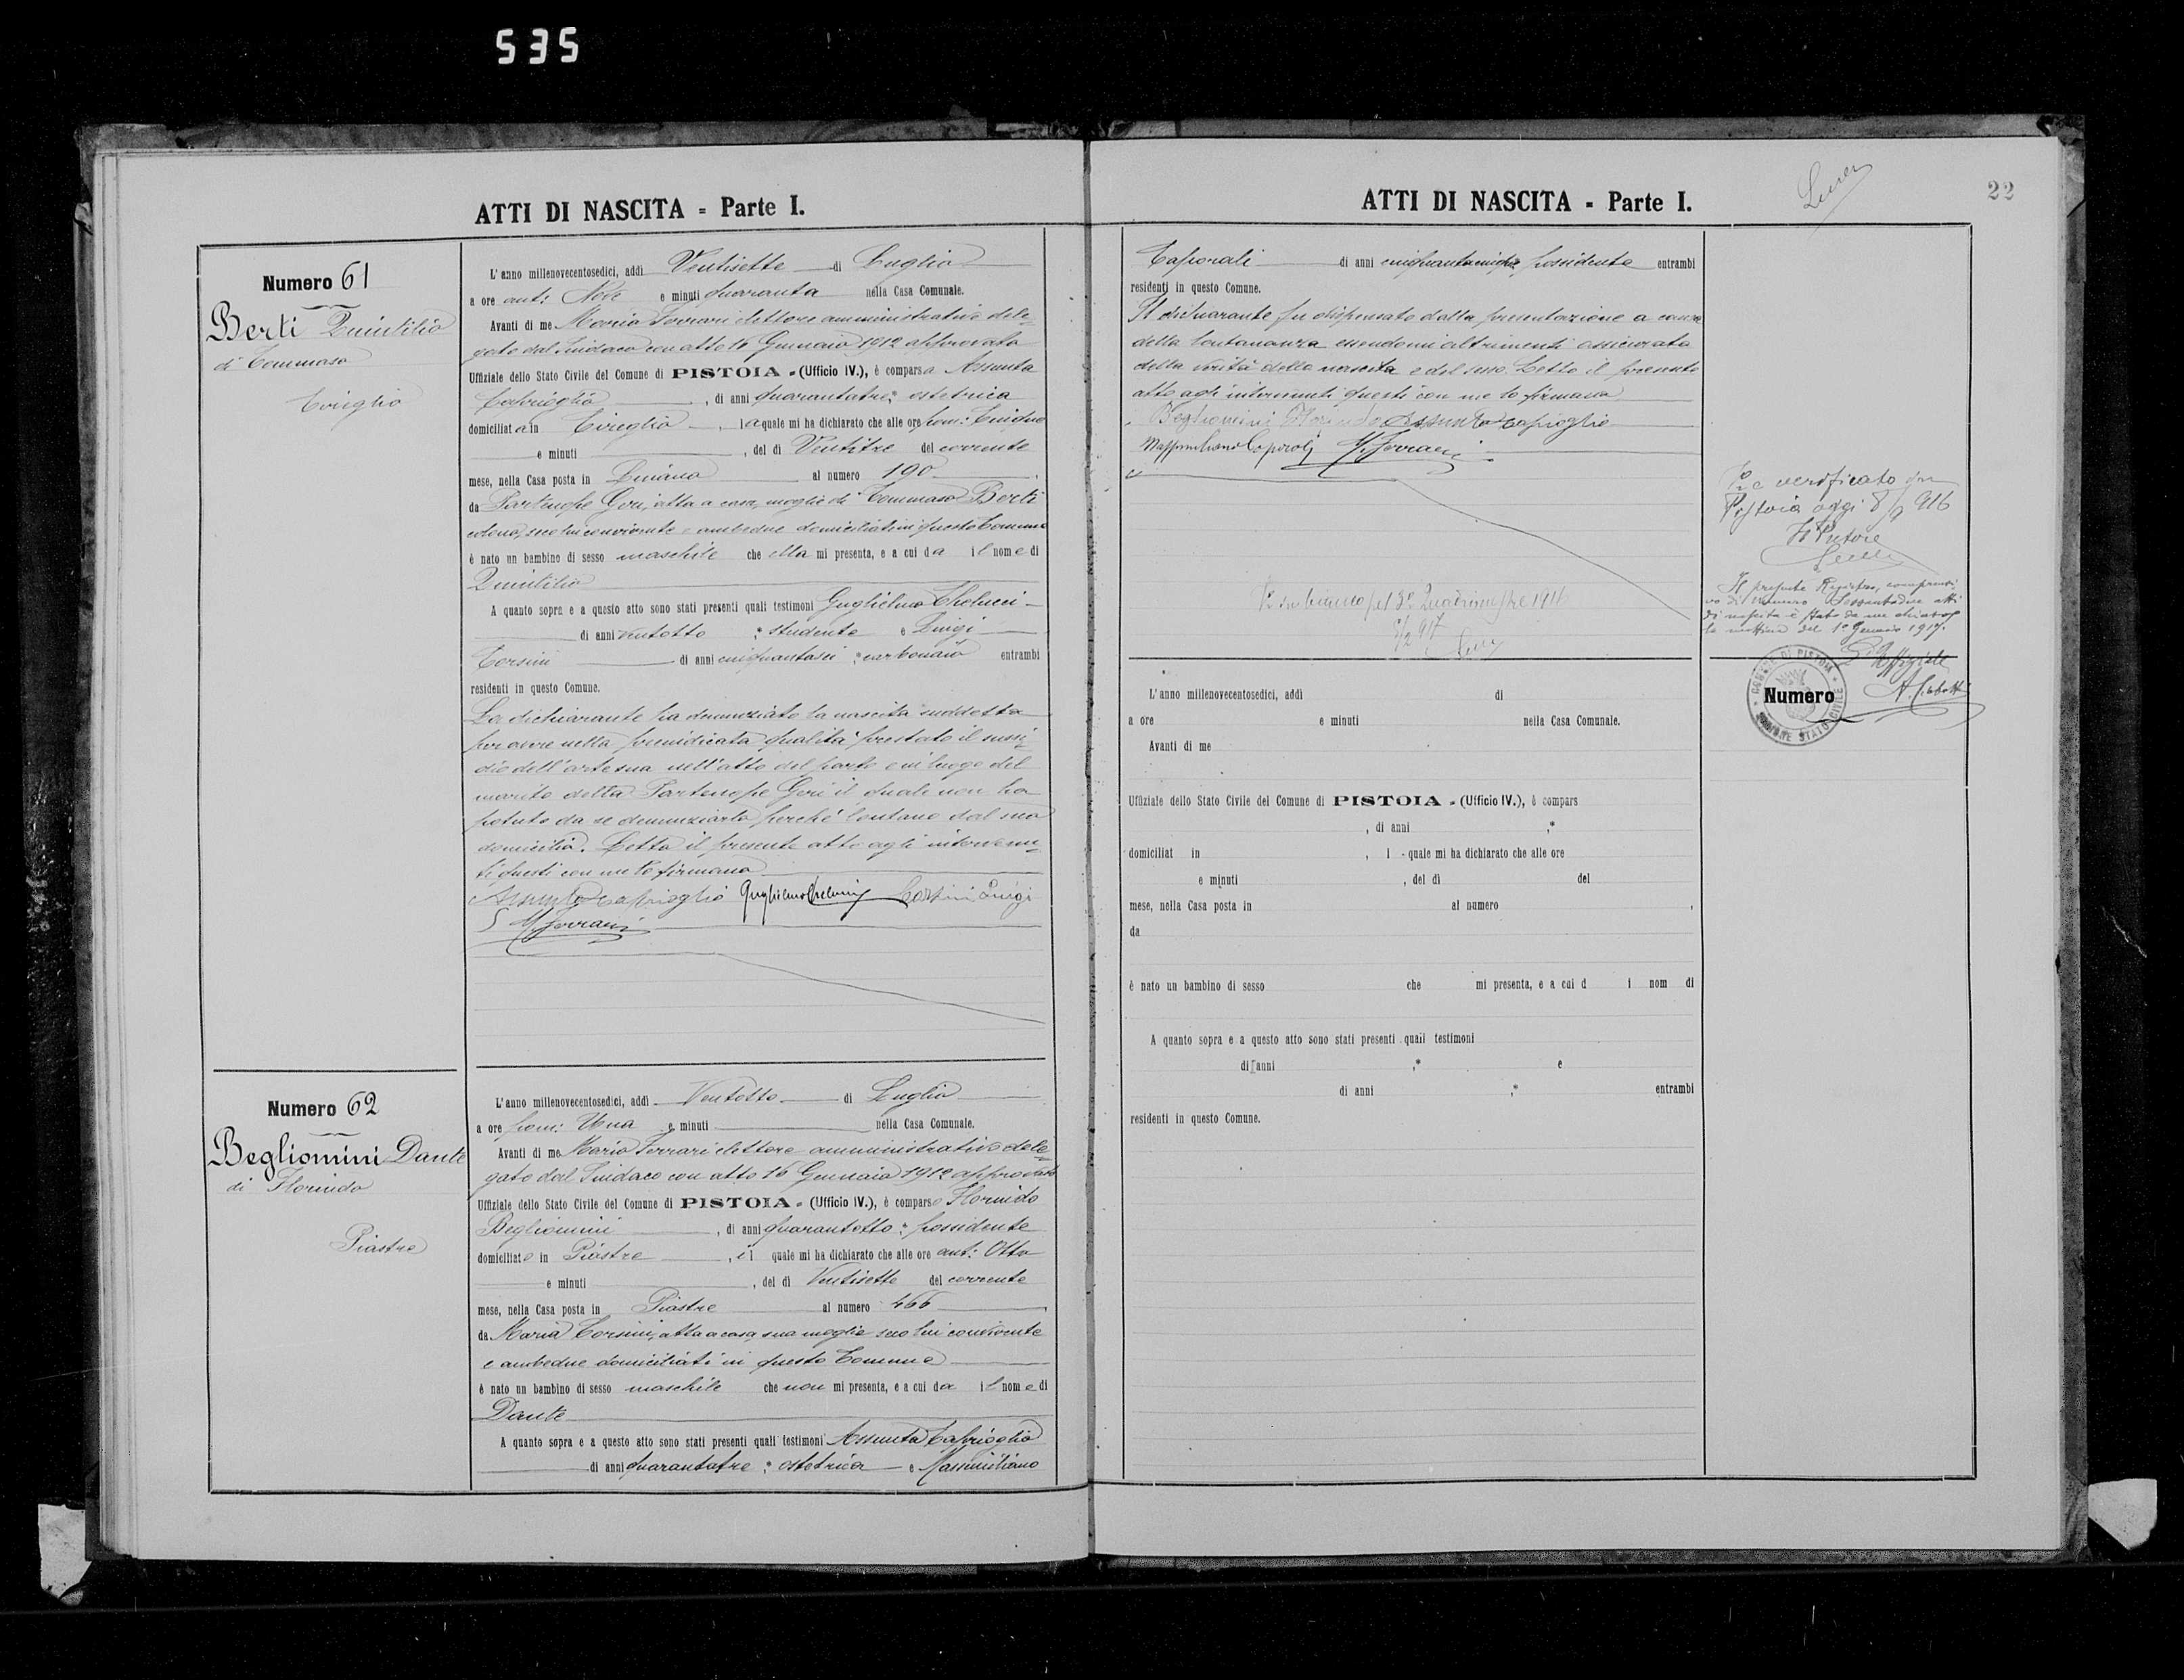 535
ATTI DI NASCITA - Parte I.
Numero 61
Berti Quintilio
di Tommaso
Cireglio
L'anno millenovecentosedici, addì Ventisette di Luglio
a ore ant: Nove e minuti quaranta nella Casa Comunale.
Avanti di me Mario Ferrari elettore amministrativo dele-
gato dal Sindaco con atto 16 Gennaio 1912 approvato
Uffiziale dello Stato Civile del Comune di PISTOIA - (Ufficio IV.), è comparsa Assunta
Caprioglio, di anni quarantatre; ostetrica
domiciliata in Cireglio, la quale mi ha dichiarato che alle ore pom: Cinque
e minuti, del dì Ventitre del corrente
mese, nella Casa posta in al numero 190
da Partenope Geri, atta a casa, moglie di Tommaso Berti
colono, seco lui convivente e ambedue domiciliati in questo Comune
è nato un bambino di sesso maschile che ella mi presenta, e a cui da il nome di
Quintilio
A quanto sopra e a questo atto sono stati presenti quali testimoni Guglielmo Chelucci
di anni ventotto; studente e Luigi
Corsini di anni cinquantasei; carbonaio entrambi
residenti in questo Comune.
La dichiarante ha denunziato la nascita suddetta
per avere nella preindicata qualità prestato il sussi-
dio dell'arte sua nell'atto del parto e in luogo del
marito della Partenope Geri il quale non ha
potuto da se denunziarla perché lontano dal suo
domicilio. Letto il presente atto agli intervenu-
ti questi con me lo firmano
Assunta Caprioglio Guglielmo Chelucci Corsini Luigi
M Ferrari
Numero 62
Begliomini Dante
di Florindo
Piastre
L'anno millenovecentosedici, addì Ventotto di Luglio
a ore pom: Una e minuti nella Casa Comunale.
Avanti di me Mario Ferrari elettore amministrativo dele-
gato dal Sindaco con atto 16 Gennaio 1912 approvato
Uffiziale dello Stato Civile del Comune di PISTOIA - (Ufficio IV.), è comparso Florindo
Begliomini, di anni quarantotto; possidente
domiciliato in Piastre, il quale mi ha dichiarato che alle ore ant: Otto
e minuti, del dì Ventisette del corrente
mese, nella Casa posta in Piastre al numero 466
da Maria Corsini, atta a casa, sua moglie seco lui convivente
e ambedue domiciliati in questo Comune
è nato un bambino di sesso maschile che non mi presenta, e a cui da il nome di
Dante
A quanto sopra e a questo atto sono stati presenti quali testimoni Assunta Caprioglio
di anni quarantatre; ostetrica e Massimiliano
ATTI DI NASCITA - Parte I.
22
Caporali di anni cinquantacinque possidente entrambi
residenti in questo Comune.
Il dichiarante fu dispensato dalla presentazione a causa
della lontananza essendomi altrimenti assicurata
della verità della nascita e del sesso. Letto il presente
atto agli intervenuti questi con me lo firmano
Begliomini Florindo Assunta Caprioglio
Massimiliano Caporali M Ferrari
pel 3° Quadrimestre 1916
9/2 917
verificato
Pistoia oggi 8/9 916
Il Pretore
Il presente Registro, compren
di numero Sessantadue atti
di nascita è stato da me chiuso
la mattina del 1° Gennaio 1917.
L'Uffiziale
COMUNE DI PISTOIA
STATO CIVILE
Numero
L'anno millenovecentosedici, addì di
a ore e minuti nella Casa Comunale.
Avanti di me
Uffiziale dello Stato Civile del Comune di PISTOIA - (Ufficio IV.), è compars
, di anni ;*
domiciliat in , l - quale mi ha dichiarato che alle ore
e minuti , del dì del
mese, nella Casa posta in al numero ,
da
è nato un bambino di sesso che mi presenta, e a cui d i nom di
A quanto sopra e a questo atto sono stati presenti quali testimoni
di anni ;* e
di anni ;* entrambi
residenti in questo Comune.